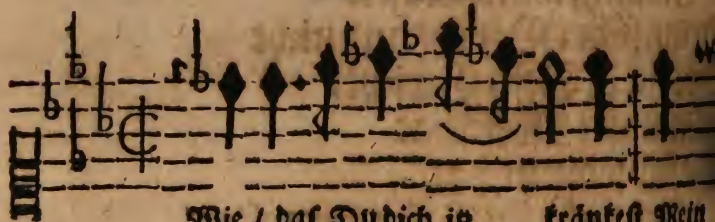 Wie / daſ Du dich ſo kränkeſt Mein